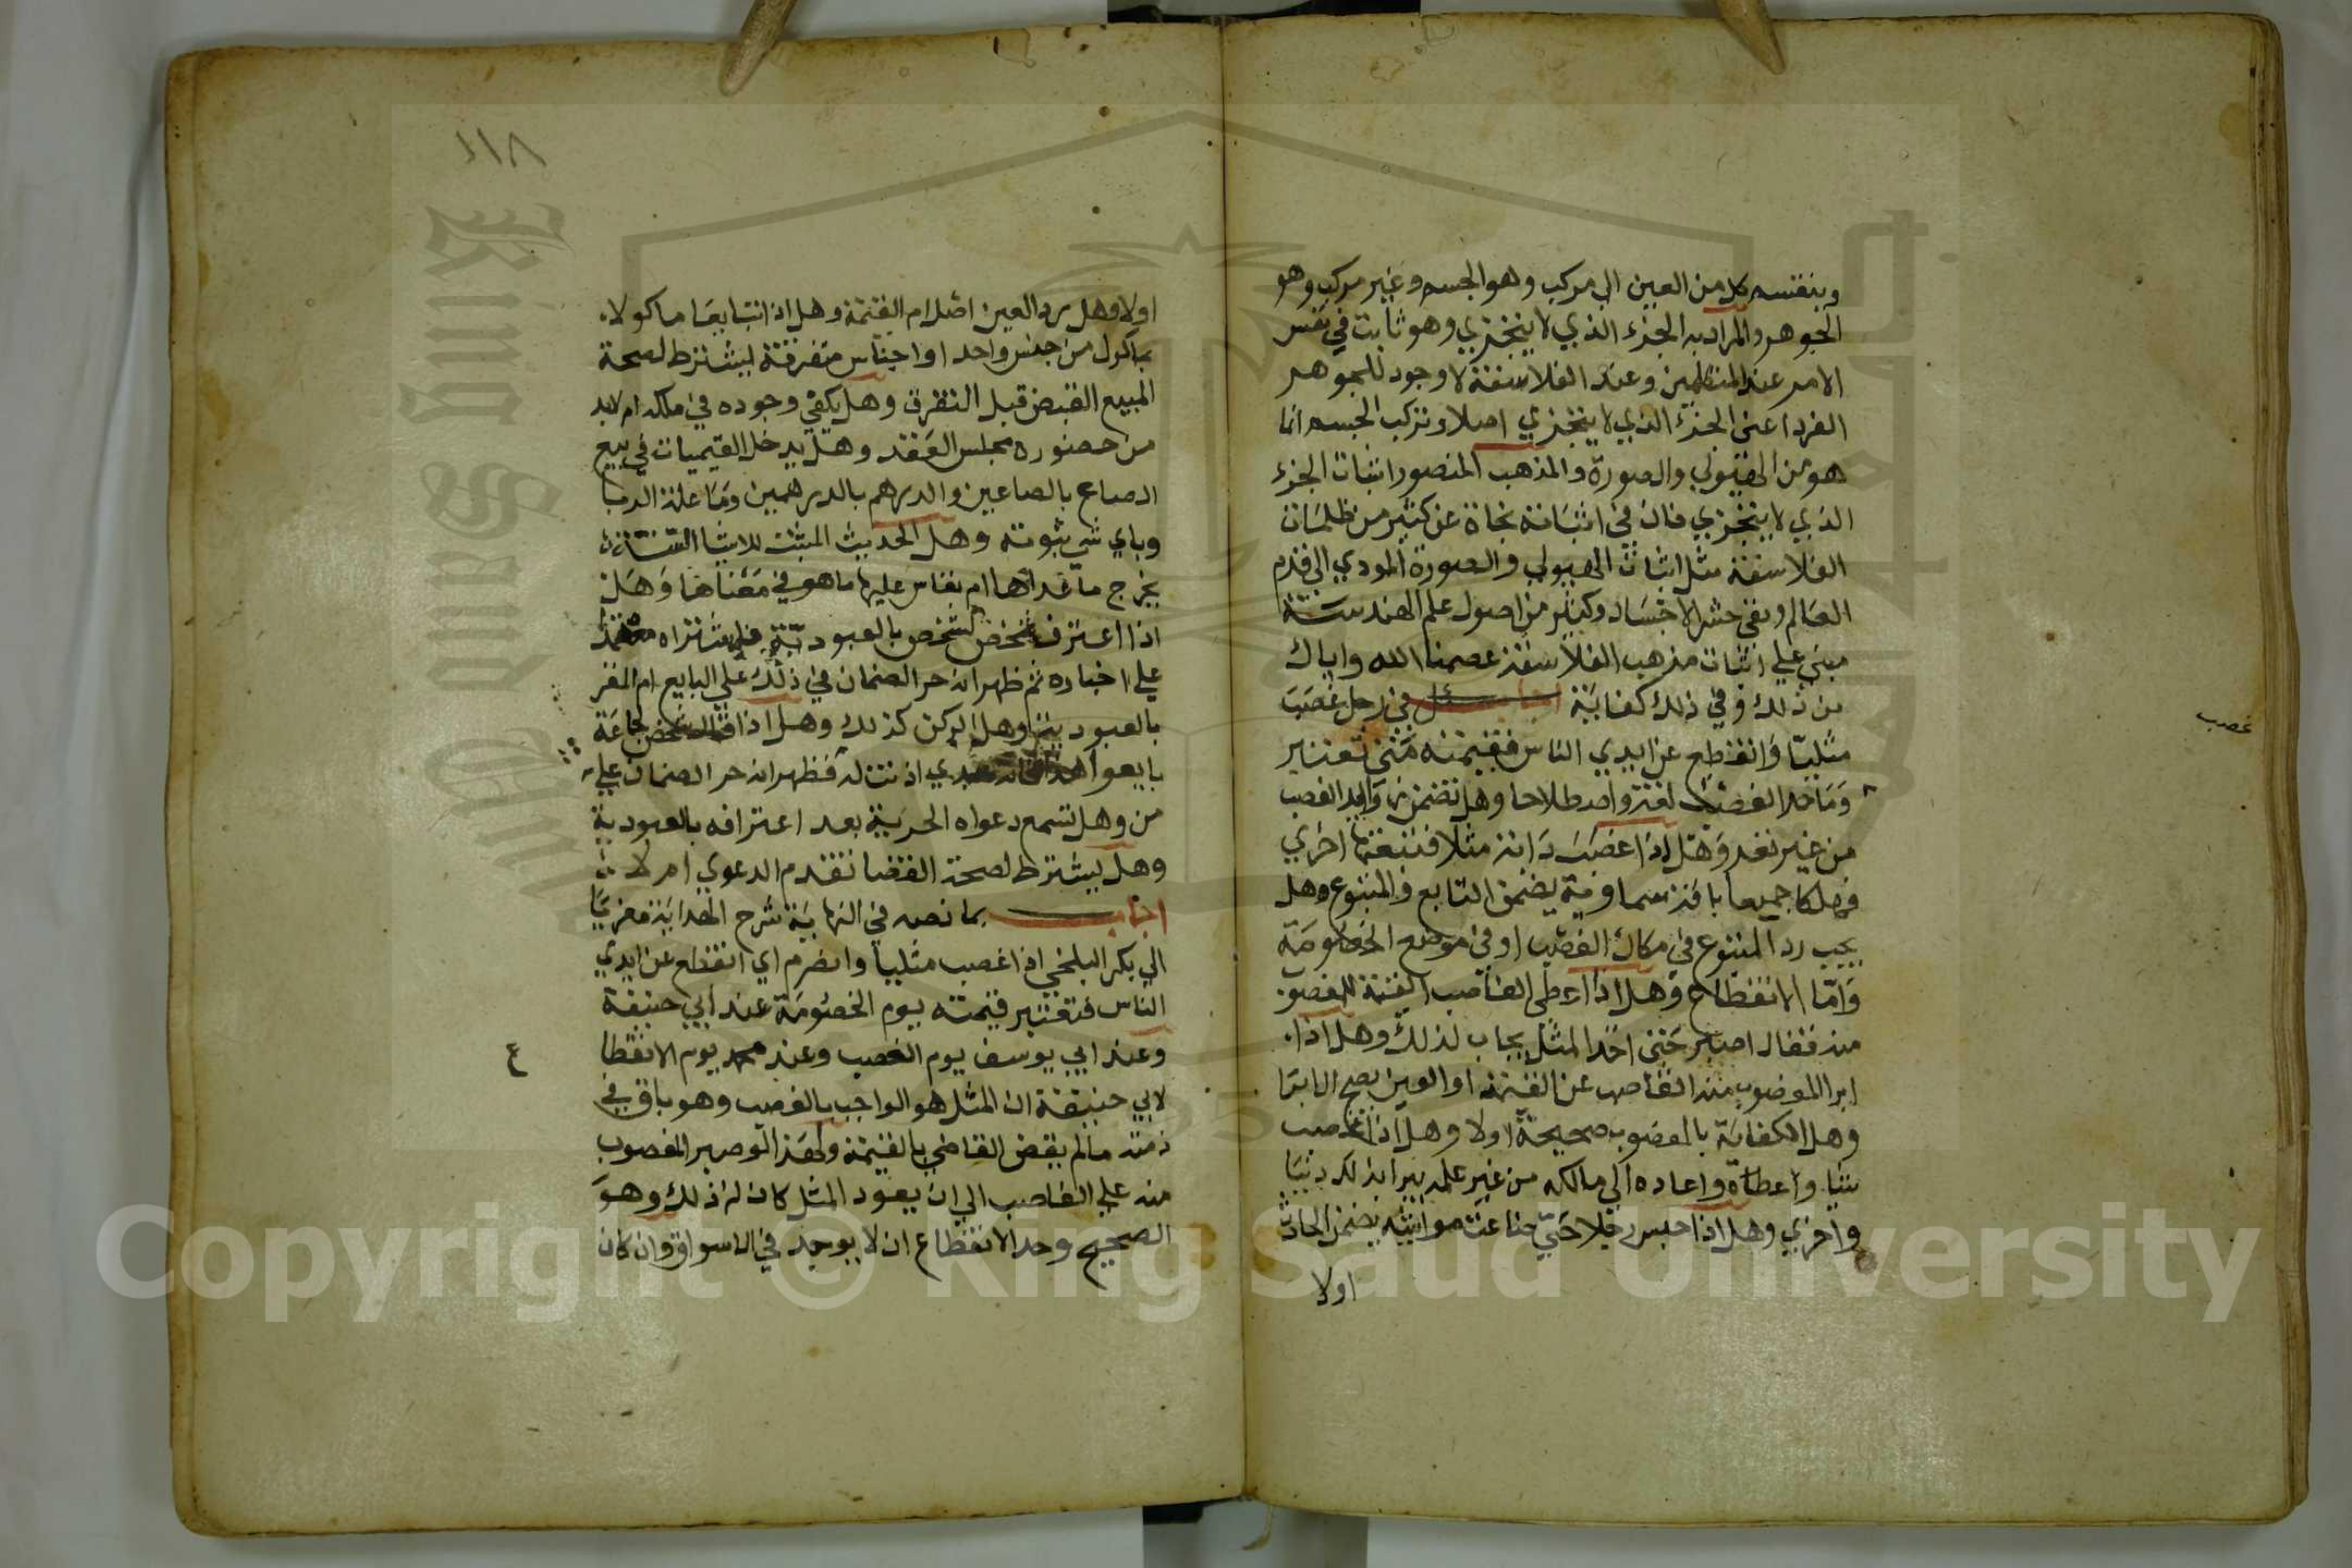 وينقسم كل من العين الى مركب وهو الجسم وغير مركب وهو
الجوهر والمراد به الجزء الذي لا يتجزي وهو ثابت في نفس
الامر عند المتكلمين وعند الفلاسفة لا وجود للجوهر
الفرد اعني الجزء الذي لا يتجزي اصلا وتركب الجسم انما
هو من الهيولي والصورة والمذهب المنصور اثبات الجزء
الذي لا يتجزي فان في اثباته نجاة عن كثير من ظلمات
الفلاسفة مثل اثبات الهيولي والصورة المودي الي قدم
العالم ونفي حشر الاجساد وكثير من اصول علم الهندسة
مبني علي اثبات مذهب الفلاسفة عصمنا الله واياك
من ذلك وفي ذلك كفاية سئل في رجل غصب
غصب
مثليا وانقطع عن ايدي الناس فقيمته متي تعتبر
وما حد الغصب لغة واصطلاحا وهل تضمن زوايد الغصب
من غير تعد وهل اذا غصب دابة مثلا فتبعتها اخري
فهلكا جميعا بافة سماوية يضمن التابع والمتبوع وهل
يجب رد المتبوع في مكان الغصب او في موضع الخصومة
واما الانقطاع وهل اذا اعطى الغاصب القيمة للمغصوب
منه فقال اصبر حتى اخذ المثل يجاب لذلك وهل اذا
ابرا المغصوب منه الغاصب عن القيمة او العين يصح الابرا
وهل الكفالة بالمغصوب صحيحة اولا وهل اذا غصب
شيا واعطاه واعاده الي مالكه من غير علمه يبرا بذلك دنيا
واخري وهل اذا حبس رجلا حتي ضاعت مواشيه يضمن الحابس
اولا
١١٨
اولا وهل رد العين اصل ام القيمة وهل اذا تبايعا ماكولا
بماكول من جنس واحد او اجناس متفرقة ليشترط لصحة
المبيع القبض قبل التفرق وهل يكفي وجوده في ملكه ام لابد
من حضوره مجلس العقد وهل يدخل القيميات في بيع
الصاع بالصاعين والدرهم بالدرهمين وما علة الربا
وباي شي ثبوته وهل الحديث المثبت للاشيا الستة
يخرج ما عداها ام يقاس عليها ما هو في معناها وهل
اذا اعترف شخص لشخص بالعبودية فاشتراه معتمدا
علي اخباره ثم ظهر انه حر الضمان في ذلك علي البايع ام المقر
بالعبودية وهل الركن كذلك وهل اذا قال شخص لجماعة
بايعوا هذا فانه عبدي اذنت له فظهر انه حر الضمان علي
من وهل تسمع دعواه الحرية بعد اعترافه بالعبودية
وهل يشترط لصحة القضا تقدم الدعوي ام لا
اجاب بما نصه في النهاية شرح الهداية معزيا
الي بكر البلخي اذا غصب مثليا وانصرم اي انقطع عن ايدي
الناس فتعتبر قيمته يوم الخصومة عند ابي حنيفة
وعند ابي يوسف يوم الغصب وعند محمد يوم الانقطا
ع
لابي حنيفة ان المثل هو الواجب بالغصب وهو باق في
ذمته مالم يقض القاضي بالقيمة ولهذا لو صبر المغصوب
منه علي الغاصب الي ان يعود المثل كان له ذلك وهو
الصحيح وحد الانقطاع ان لا يوجد في الاسواق وان كان
Copyright © King Saud University